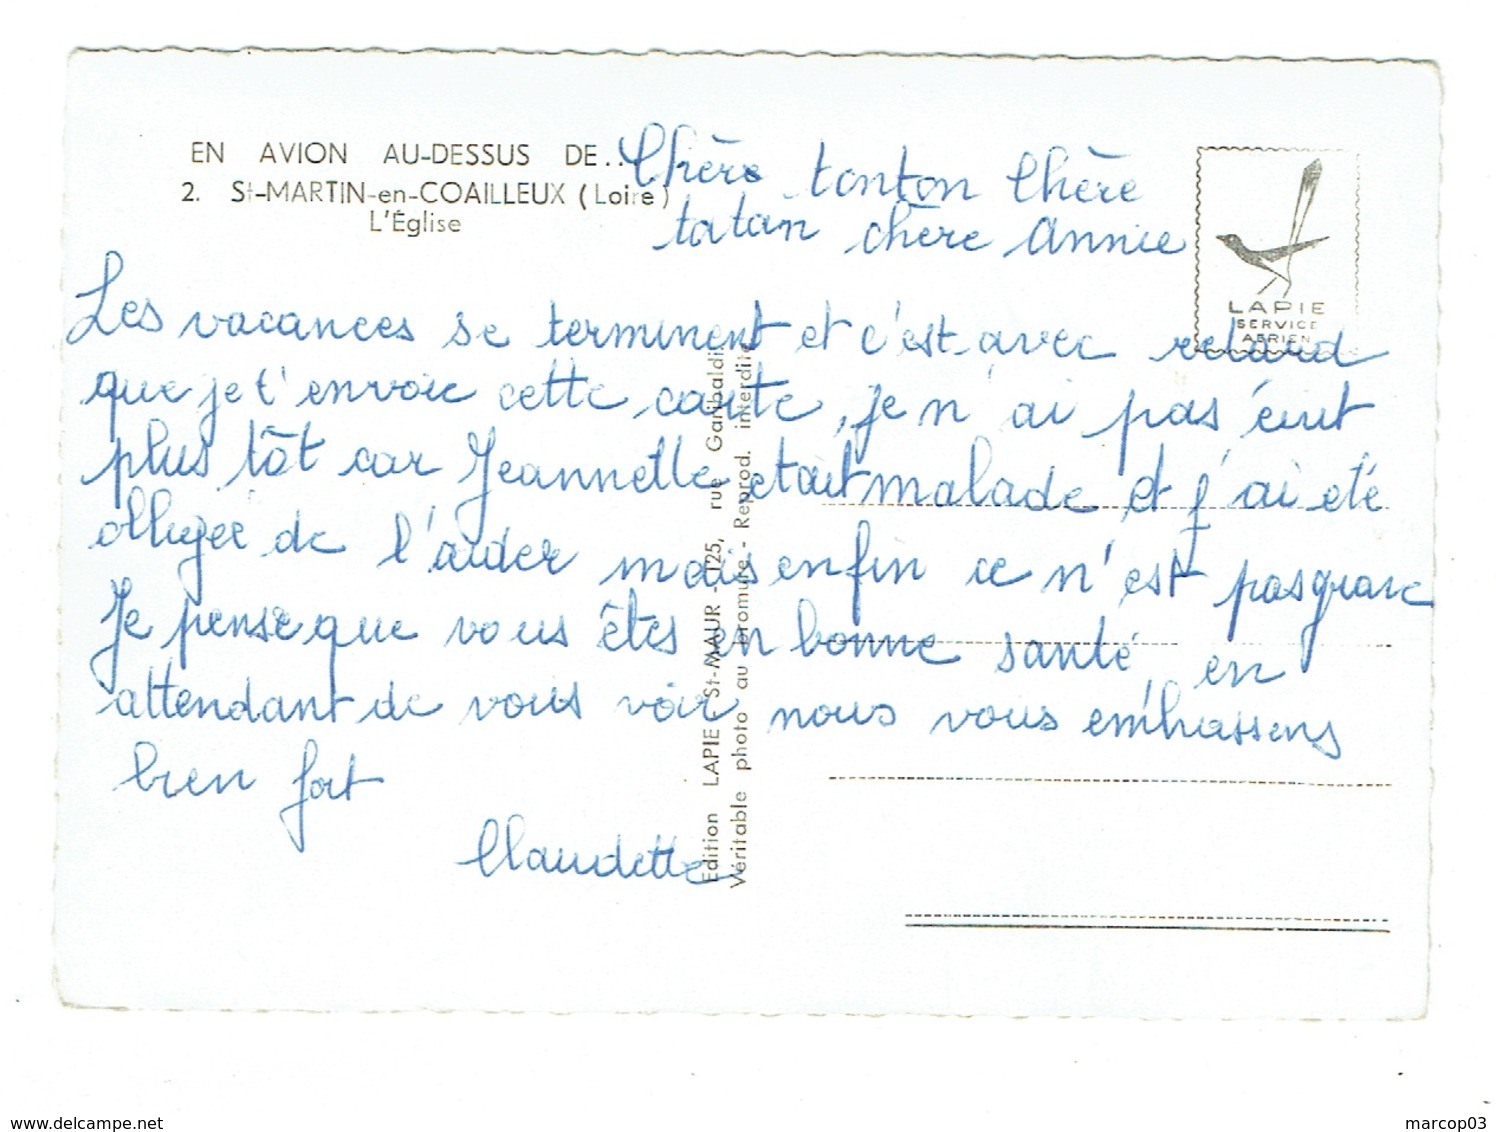 EN AVION AU-DESSUS DE...
2. St-MARTIN-en-COAILLEUX (Loire)
L'Église
Chère tonton Chère
tatan chère Annie
LAPIE
SERVICE
AERIEN
Les vacances se terminent et c'est avec retard
que je t'envoie cette carte, je n'ai pas écrit
plus tôt car Jeannette etait malade et j'ai été
obligée de l'aider mais enfin ce n'est pas grave
Je pense que vous êtes en bonne santé, en
attendant de vous voir nous vous embrassons
bien fort
Claudette
Edition LAPIE St-MAUR - 125, rue Garibaldi
Véritable photo au bromure - Reprod. interdite
delcampe.net
marcop03